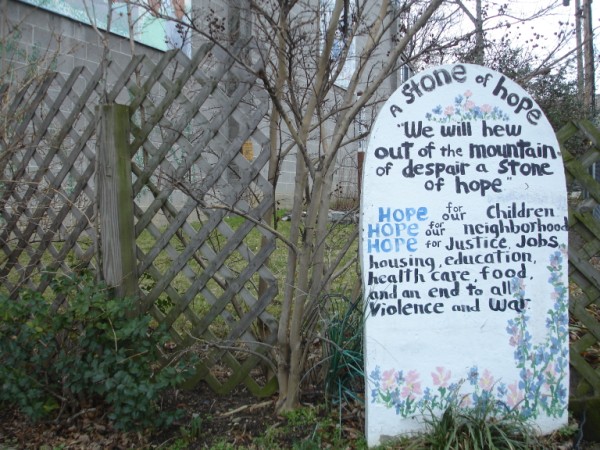 A STONE of HOPE
"We will hew
out of the mountain
of despair a Stone
of hope"
HOPE for our Children
HOPE for our neighborhood
HOPE for Justice, Jobs,
housing, education,
health care, food,
and an end to all
Violence and War